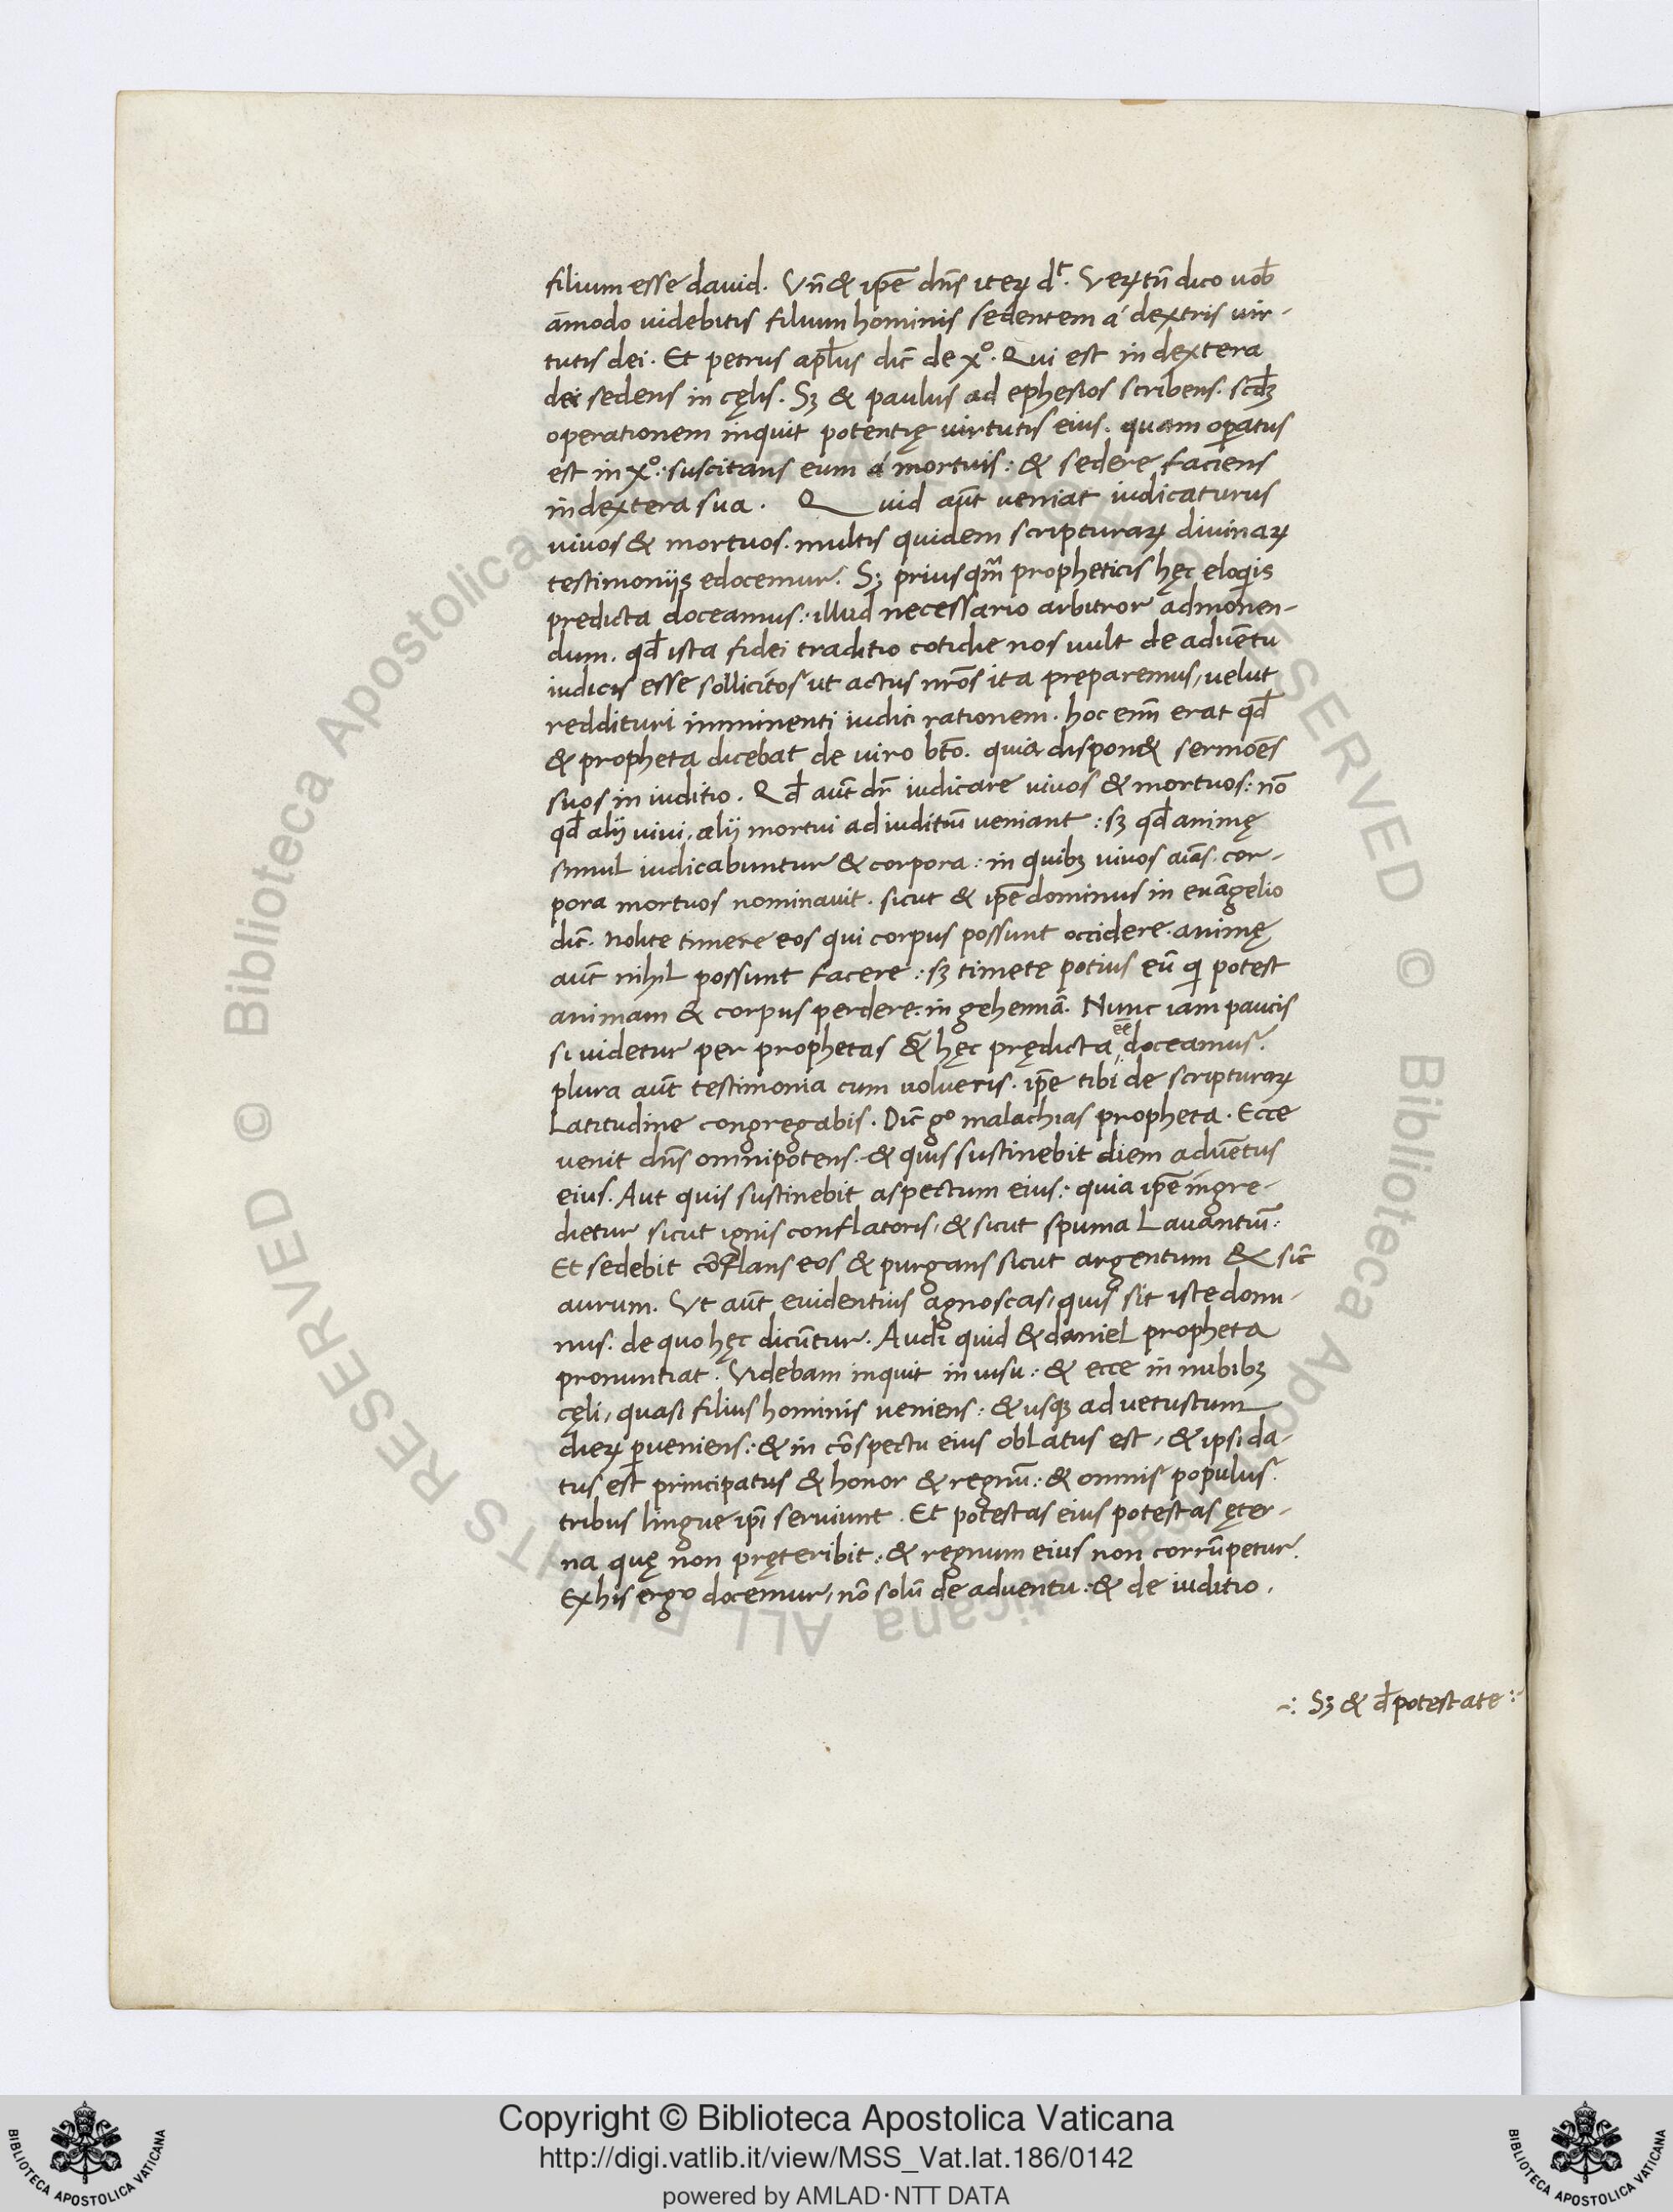 filium esse david. Vn̄ & ip̄e dn̄s iteꝝ dᵗ. Veꝝtn̄ dico uob̄
am̄odo uidebitis filium hominis sedentem á dextris uir-
tutis dei. Et petrus ap̄lus dic̄ de xº. Qui est in dextera
dei sedens in cęlis. Sꝫ & paulus ad ephesios scribens. scd̄ꝫ
operationem inquit potentię uirtutis eius. quam oꝑatus
est in xº: suscitans eum á mortuis: & sedere faciens
in dextera sua. Quid aūt ueniat iudicaturus
uiuos & mortuos. multis quidem scripturaꝝ diuinaꝝ
testimoniis edocemur. Sꝫ priusqm̄ propheticis hęc eloq̄is
predicta doceamus: illud necessario arbitror admonen-
dum. qd̄ ista fidei traditio cotidie nos uult de aduētu
iudicis esse sollicitos ut actus nr̄os ita preparemus, uelut
reddituri imminenti iudici rationem. hoc enī erat qd̄
& propheta dicebat de uiro bt̄o. quia dispon& sermōes
suos in iuditio. Qd̄ aūt dr̄ iudicare uiuos & mortuos: nō
qd̄ alij uiui, alij mortui ad iuditiū ueniant: sꝫ qd̄ animę
simul iudicabuntur & corpora: in quibꝫ uiuos aīas. cor-
pora mortuos nominauit. sicut & ip̄e dominus in euāgelio
dic̄. Nolite timere eos qui corpus possunt occidere. animę
aūt nihil possunt facere: sꝫ timete potius eū q̄ potest
animam & corpus perdere: in gehennā. Nunc iam paucis
si uidetur per prophetas &̄ hęc prędicta ēē doceamus.
plura aūt testimonia cum uolueris. ip̄e tibi de scripturaꝝ
latitudine congregabis. Dic̄ gº malachias propheta. Ecce
uenit dn̄s omnipotens. & quis sustinebit diem aduētus
eius. Aut quis sustinebit aspectum eius: quia ip̄e ingre-
dietur sicut ignis conflatoris, & sicut spuma lauantiū:
Et sedebit cōflans eos & purgans sicut argentum & sic̄
aurum. Ut aūt euidentius agnoscas, quis sit iste domi-
nus. de quo hęc dicūtur. Audi quid & daniel propheta
pronuntiat. Videbam inquit in uisu: & ecce in nubibꝫ
cęli, quasi filius hominis ueniens: & usqꝫ ad uetustum
dieꝝ ꝑueniens: & in cōspectu eius oblatus est, & ipsi da-
tus est principatus & honor & regnū: & omnis populus.
tribus lingue ip̄i seruiunt. Et potestas eius potestas ęter-
na quę non pręteribit: & regnum eius non corrūpetur.
Ex his ergo docemur, nō solū de aduentu: & de iuditio,
Sꝫ & d̄ potestate
© Biblioteca Apostolica Vaticana ALL RIGHTS RESERVED
© Biblioteca Apostolica Vaticana ALL RIGHTS RESERVED
Copyright © Biblioteca Apostolica Vaticana
http://digi.vatlib.it/view/MSS_Vat.lat.186/0142
powered by AMLAD·NTT DATA
BIBLIOTECA APOSTOLICA VATICANA
BIBLIOTECA APOSTOLICA VATICANA